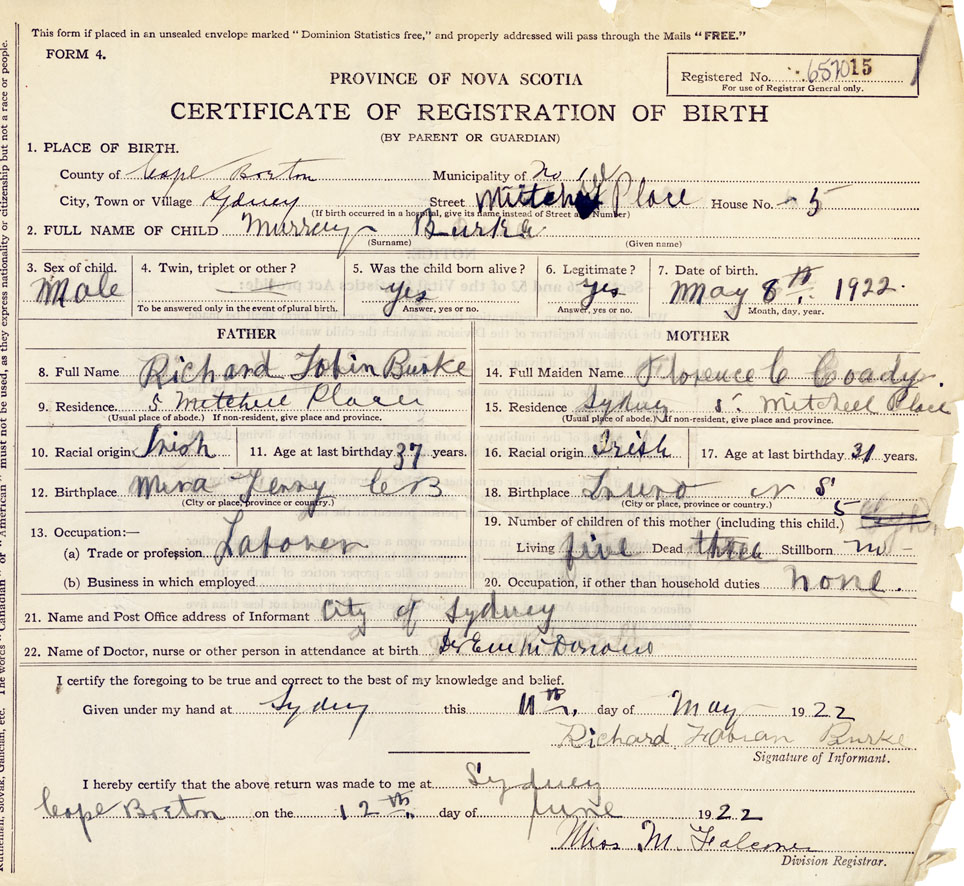 This form if placed in an unsealed envelope marked "Dominion Statistics free," and properly addressed will pass through the Mails "FREE."
FORM 4.
PROVINCE OF NOVA SCOTIA
Registered No. 657015
For use of Registrar General only.
CERTIFICATE OF REGISTRATION OF BIRTH
(BY PARENT OR GUARDIAN)
1. PLACE OF BIRTH.
County of Cape Breton Municipality of No 1
City, Town or Village Sydney Street Mitchell Place House No. 5
(If birth occurred in a hospital, give its name instead of Street and Number)
2. FULL NAME OF CHILD Murray Burke
(Surname) (Given name)
3. Sex of child. 4. Twin, triplet or other? 5. Was the child born alive? 6. Legitimate? 7. Date of birth.
Male yes yes May 8th 1922
To be answered only in the event of plural birth. Answer, yes or no. Answer, yes or no. Month, day, year.
FATHER MOTHER
8. Full Name Richard Tobin Burke 14. Full Maiden Name Florence C Coady
9. Residence 5 Mitchell Place 15. Residence Sydney 5 Mitchell Place
(Usual place of abode.) If non-resident, give place and province. (Usual place of abode.) If non-resident, give place and province.
10. Racial origin Irish 11. Age at last birthday 37 years. 16. Racial origin Irish 17. Age at last birthday 31 years.
12. Birthplace Mira Ferry C B 18. Birthplace Truro N S
(City or place, province or country.) (City or place, province or country.)
13. Occupation:— 19. Number of children of this mother (including this child.) 5
(a) Trade or profession Laborer Living five Dead three Stillborn no
(b) Business in which employed 20. Occupation, if other than household duties none.
21. Name and Post Office address of Informant City of Sydney
22. Name of Doctor, nurse or other person in attendance at birth Dr
I certify the foregoing to be true and correct to the best of my knowledge and belief.
Given under my hand at Sydney this 11th day of May 1922
Richard Fabian Burke
Signature of Informant.
I hereby certify that the above return was made to me at Sydney
Cape Breton on the 12th day of June 1922
Miss M. Falconer
Division Registrar.
Ruthenian, Slovak, Galician, etc. The words "Canadian" or "American" must not be used, as they express nationality or citizenship but not a race or people.